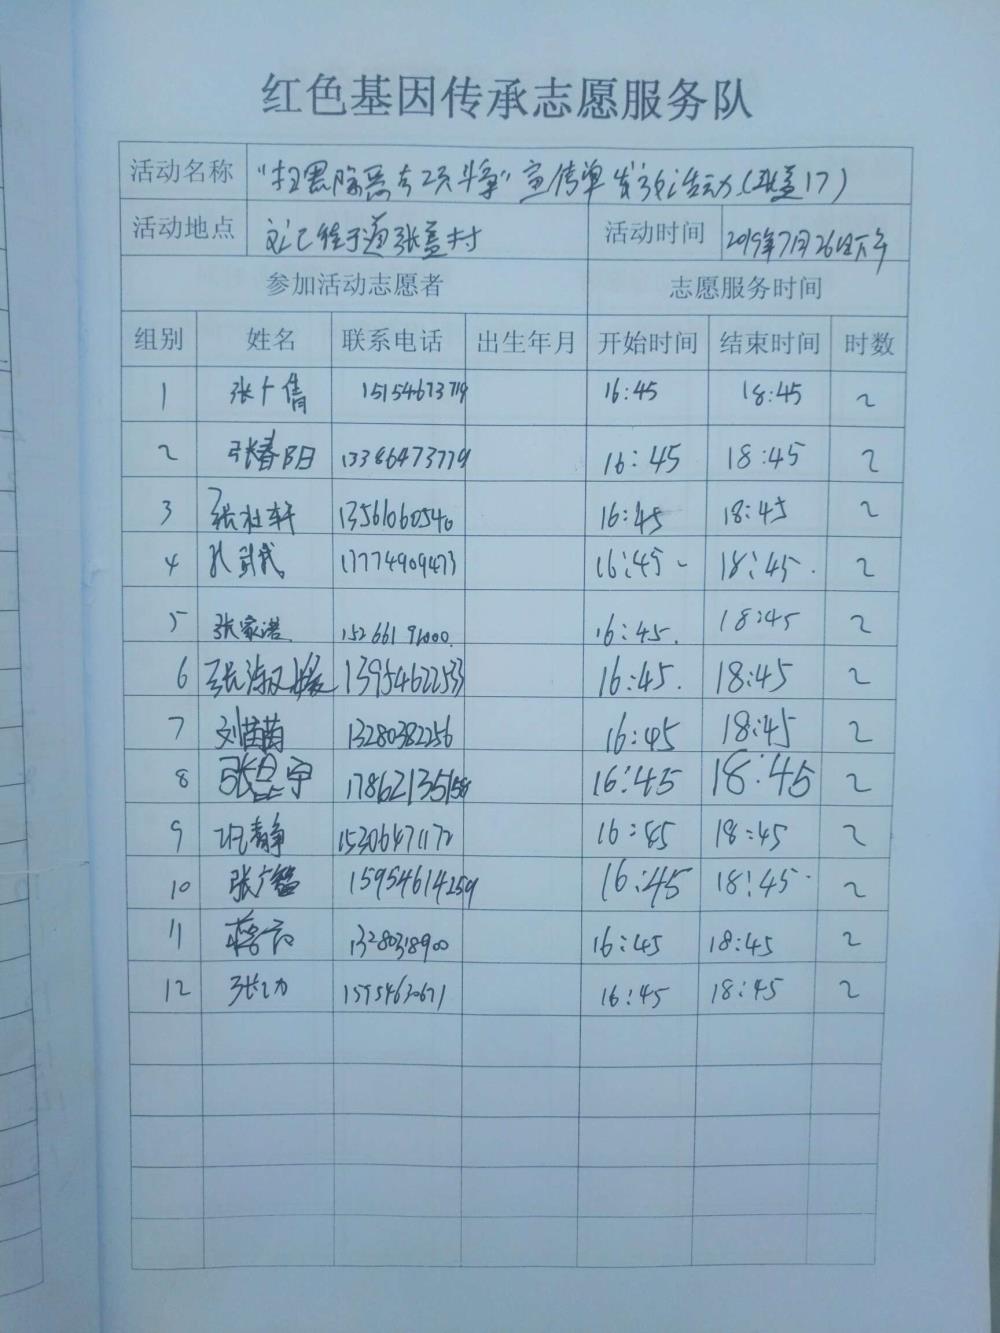 红色基因传承志愿服务队
活动名称 "扫黑除恶专项斗争"宣传单发放活动(张盖17)
活动地点 街道张盖村 活动时间 2019年7月26日下午
参加活动志愿者 志愿服务时间
组别 姓名 联系电话 出生年月 开始时间 结束时间 时数
1 张广倩 15154673719 16:45 18:45 2
2 张春阳 13386473779 16:45 18:45 2
3 13561060540 16:45 18:45 2
4 17774909473 16:45 18:45 2
5 张家浩 15266191000 16:45 18:45 2
6 张淑媛 13954622533 16:45 18:45 2
7 刘苗苗 13280382256 16:45 18:45 2
8 张昱宁 17862135158 16:45 18:45 2
9 静 15306471172 16:45 18:45 2
10 张广 15954614259 16:45 18:45 2
11 13280318900 16:45 18:45 2
12 张 16:45 18:45 2